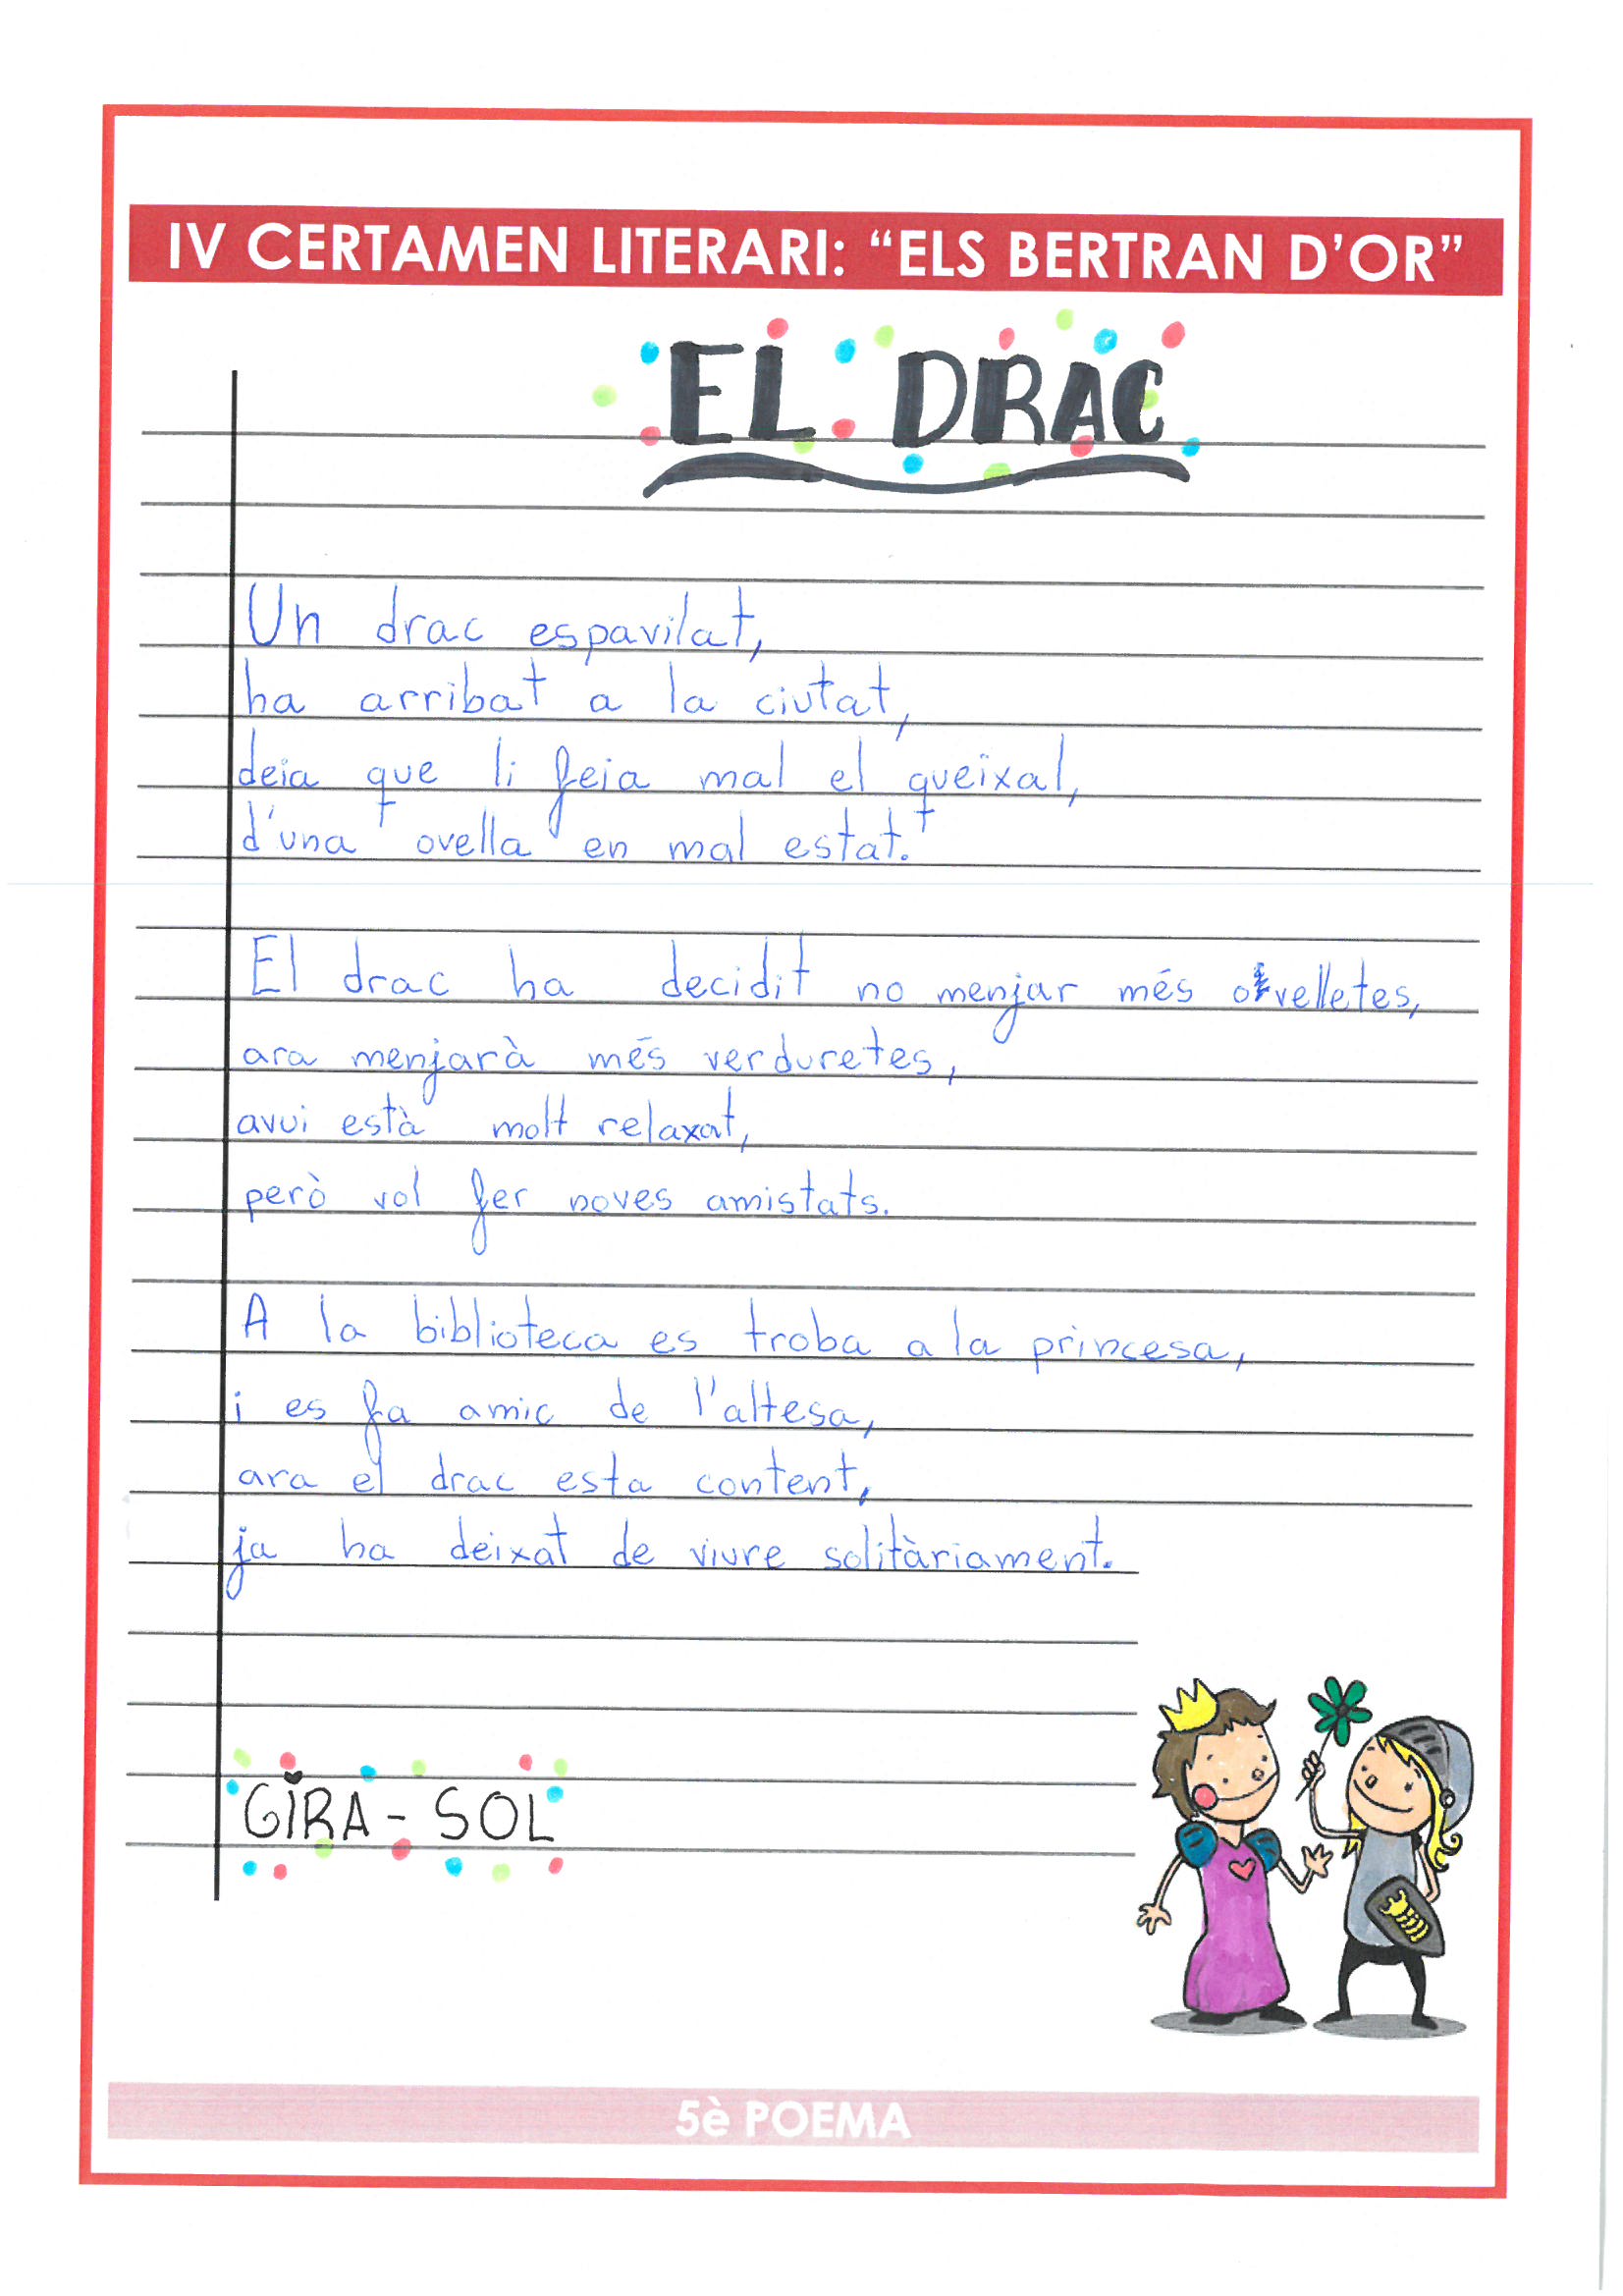 IV CERTAMEN LITERARI: “ELS BERTRAN D’OR”
EL DRAC
Un drac espavilat,
ha arribat a la ciutat,
deia que li feia mal el queixal,
d'una ovella en mal estat.
El drac ha decidit no menjar més ovelletes,
ara menjarà més verduretes,
avui està molt relaxat,
però vol fer noves amistats.
A la biblioteca es troba a la princesa,
i es fa amic de l'altesa,
ara el drac esta content,
ja ha deixat de viure solitàriament.
GIRA-SOL
5è POEMA